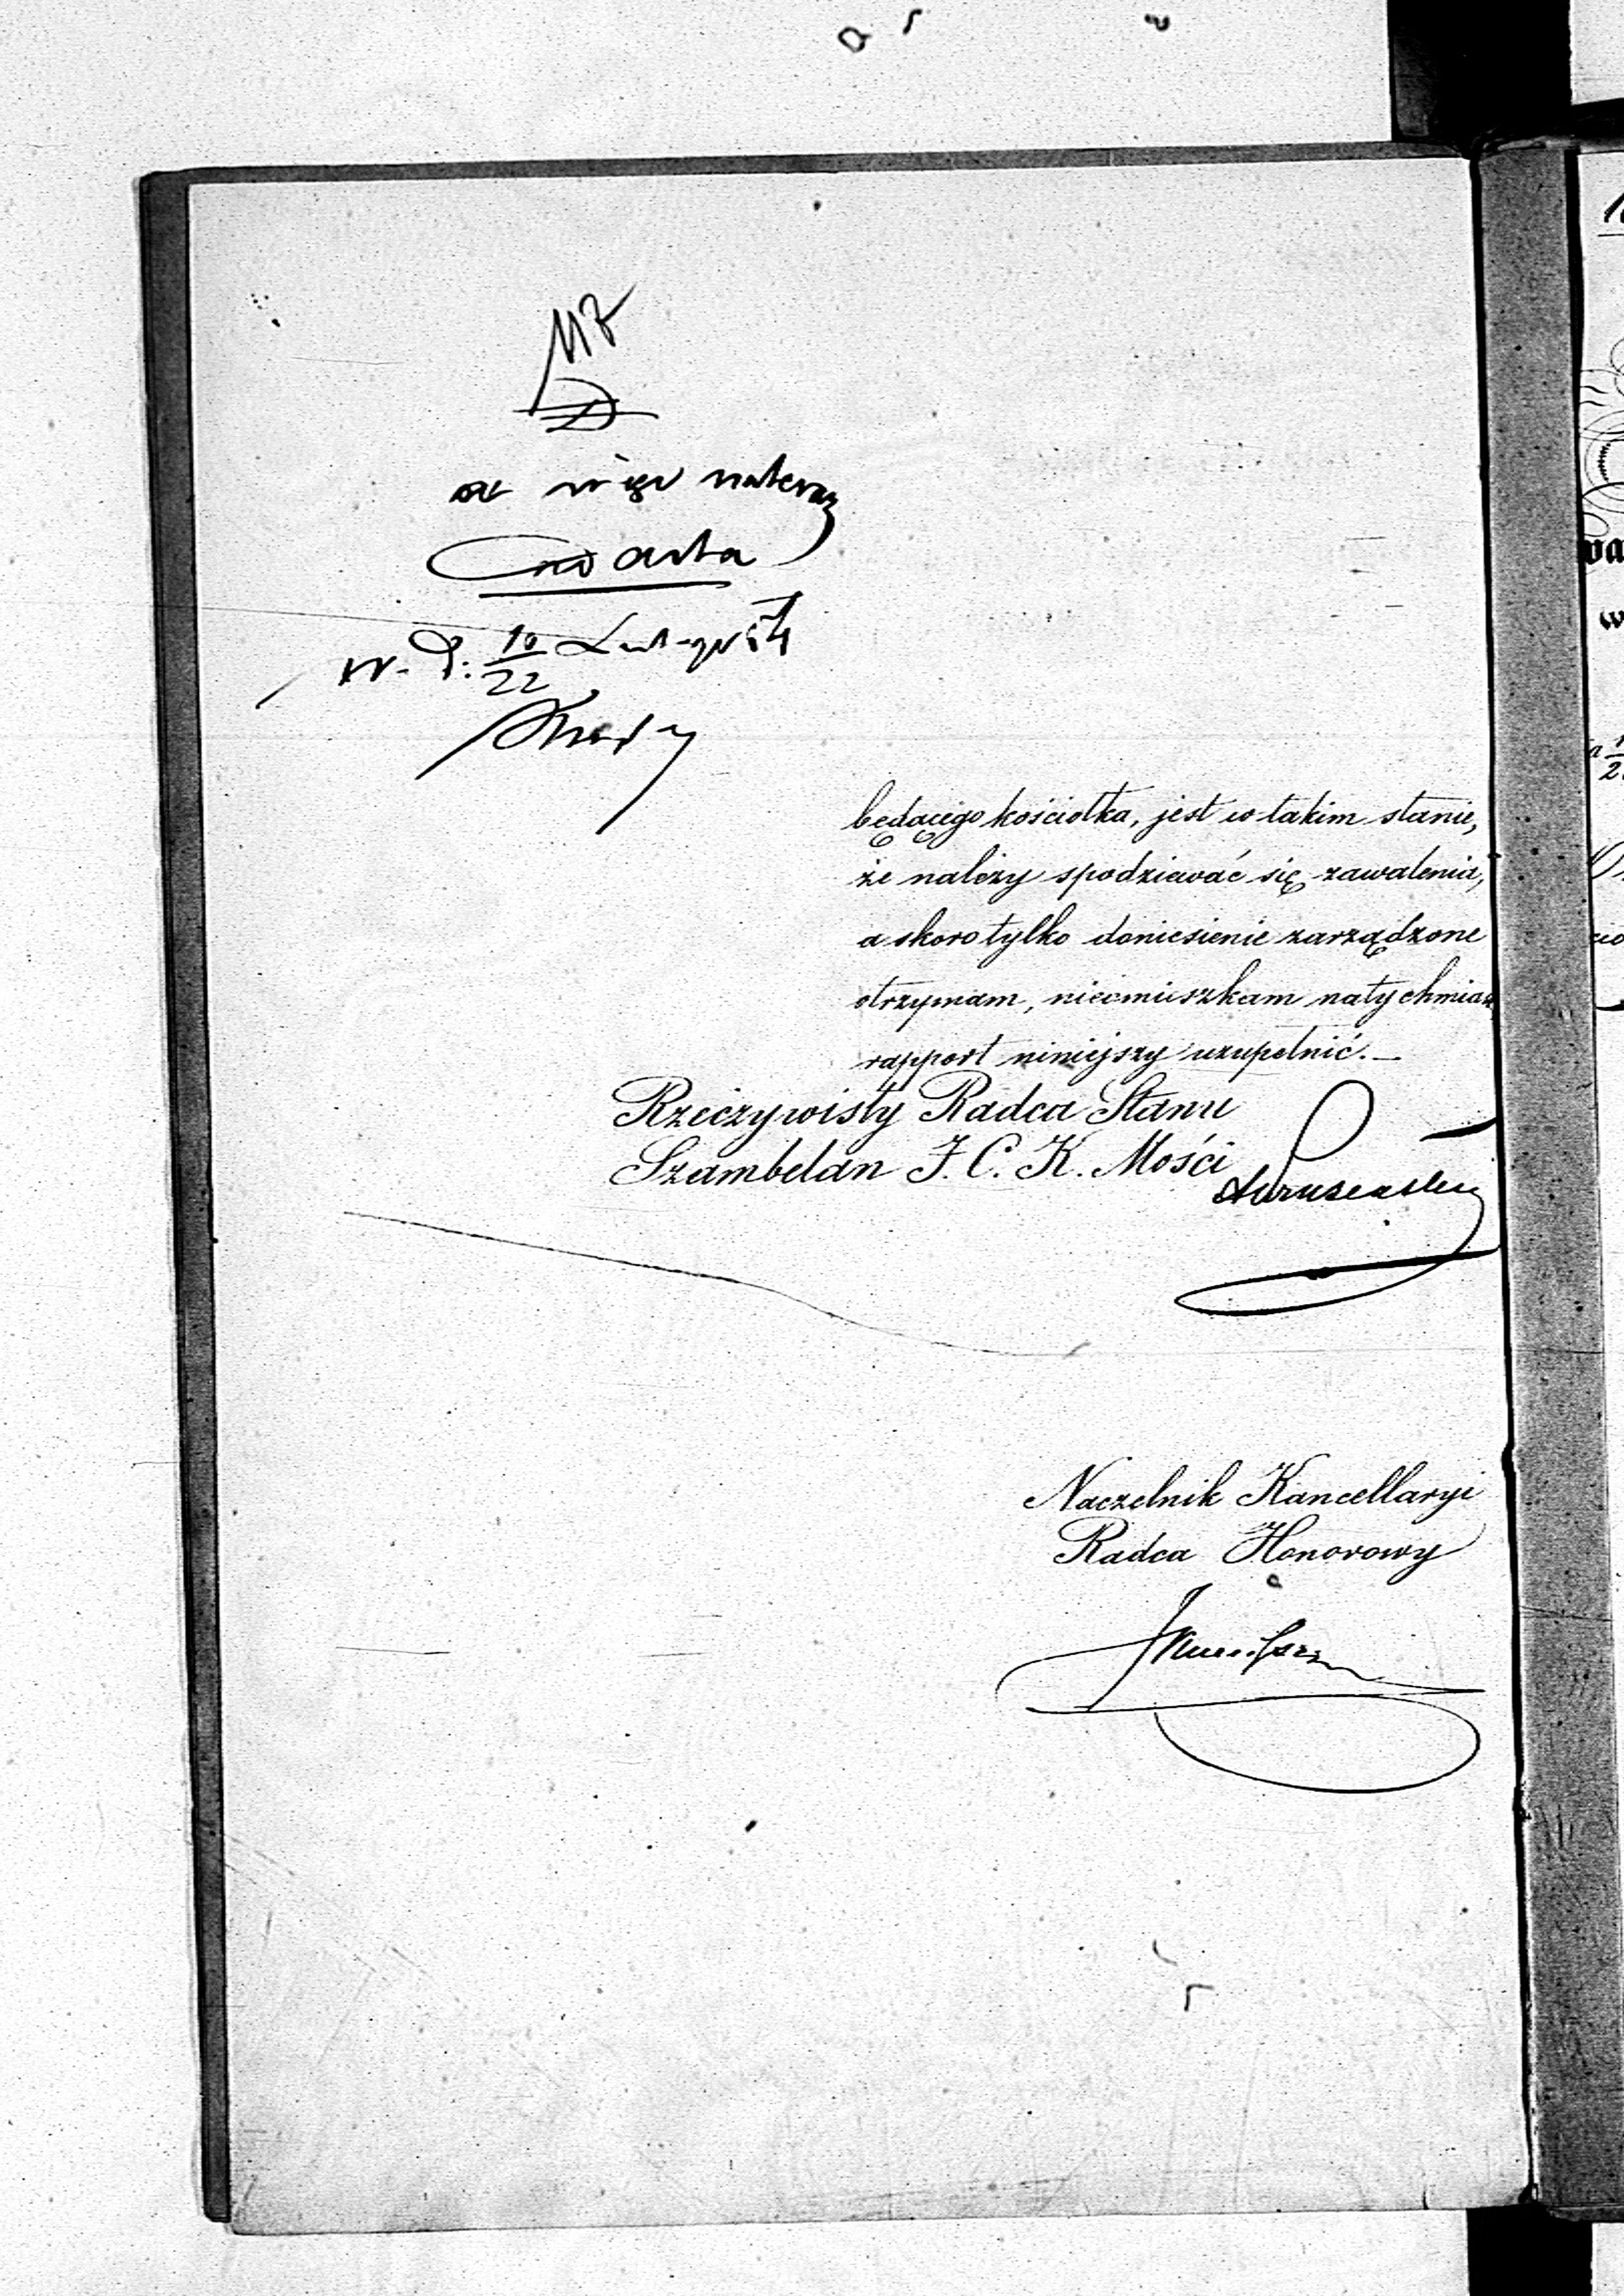 a więc nateraz
Czwarta
W. d. 10/22 Lutego
będącego kościołka, jest w takim stanie,
że należy spodziewać się zawalenia,
a skoro tylko doniesienie zarządzone
otrzymam, nieomieszkam natychmiast
rapport niniejszy uzupełnić.—
Rzeczywisty Radca Stanu
Szambelan J. C. K. Mości
Naczelnik Kancellaryi
Radca Honorowy